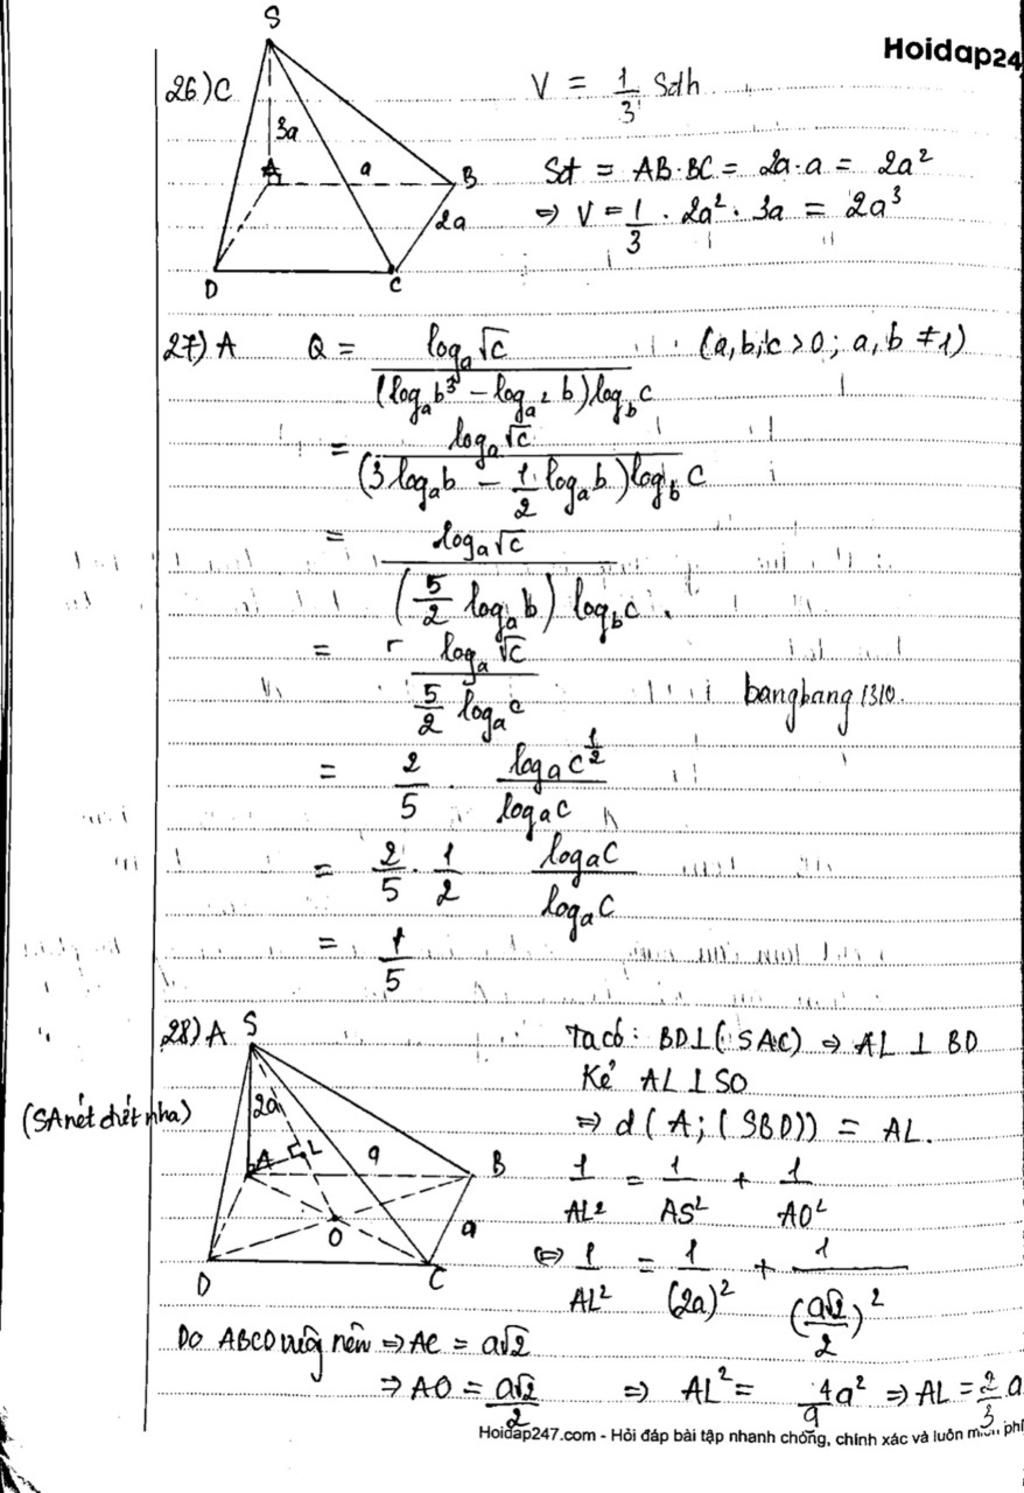 Hoidap24
26) C
S
3a
A
a
B
2a
D
C
V = 1/3 Sđh
Sđ = AB.BC = 2a.a = 2a²
⇒ V = 1/3 . 2a² . 3a = 2a³
27) A Q = logₐ√c / ((logₐb³ - log_a² b) log_b c) (a,b,c > 0; a, b ≠ 1)
= logₐ√c / ((3logₐb - 1/2 logₐb) log_b c)
= logₐ√c / ((5/2 logₐb) log_b c)
= logₐ√c / (5/2 logₐc)
bangbang1310.
= 2/5 . logₐc^(1/2) / logₐc
= 2/5 . 1/2 logₐc / logₐc
= 1/5
28) A
S
(SA nét đứt nha)
2a
A
L
a
B
O
a
D
C
Ta có: BD⊥(SAC) ⇒ AL ⊥ BD
Kẻ AL ⊥ SO
⇒ d(A; (SBD)) = AL.
1/AL² = 1/AS² + 1/AO²
⇔ 1/AL² = 1/(2a)² + 1/(a√2/2)²
Do ABCD vuông nên ⇒ AC = a√2
⇒ AO = a√2/2 ⇒ AL² = 4/9 a² ⇒ AL = 2/3 a
Hoidap247.com - Hỏi đáp bài tập nhanh chóng, chính xác và luôn miễn phí